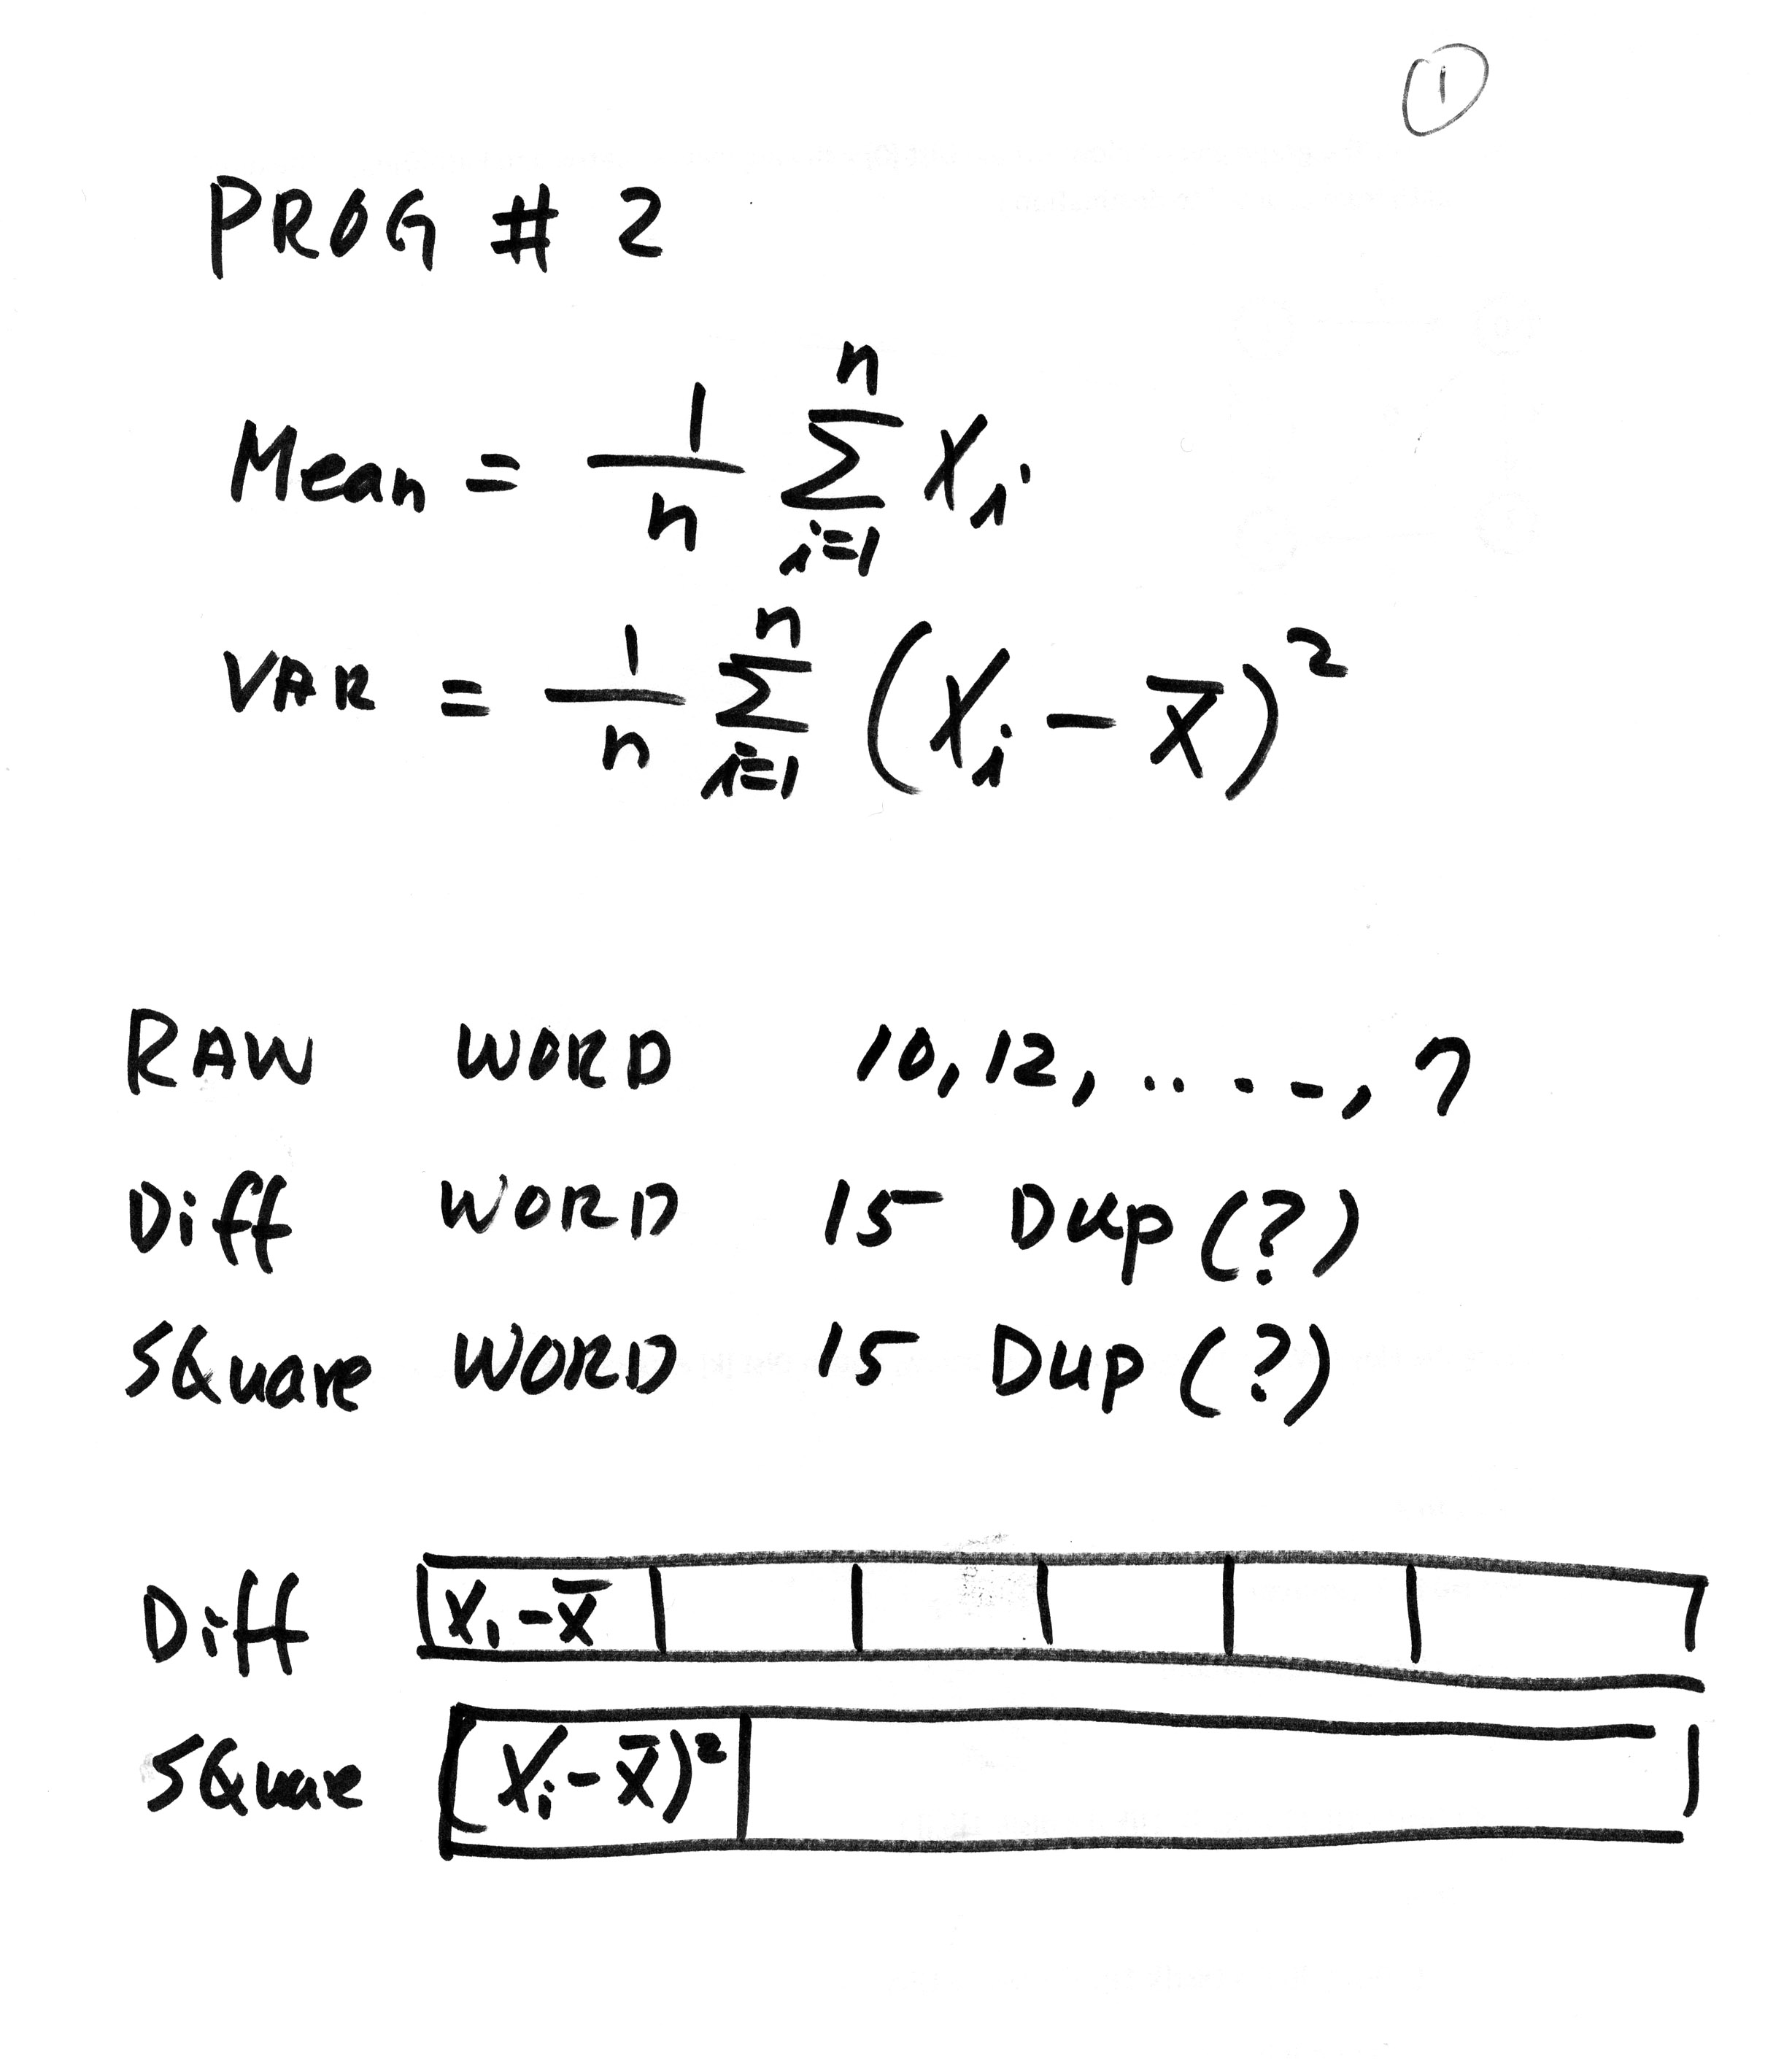 ①
PROG # 2
Mean = 1/n n∑i=1 Xi
VAR = 1/n n∑i=1 (Xi - x̄)²
RAW WORD 10, 12, . . . -, 7
Diff WORD 15 Dup (?)
SQuare WORD 15 Dup (?)
Diff X1 - x̄
SQuare (Xi - x̄)²